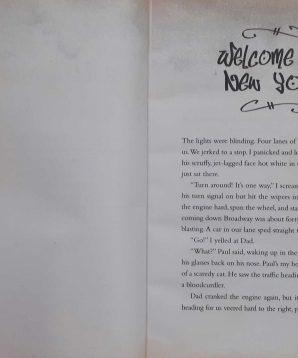 Welcome
New Yo
The lights were blinding. Four lanes of
us. We jerked to a stop. I panicked and
his scruffy, jet-lagged face hot white in
just sit there.
"Turn around! It's one way," I scream
his turn signal on but hit the wipers
the engine hard, spun the wheel, and
coming down Broadway was about
blasting. A car in our lane sped straight
"Go!" I yelled at Dad.
"What?" Paul said, waking up in the
his glasses back on his nose. Paul's my
of a scaredy cat. He saw the traffic
a bloodcurdler.
Dad cranked the engine again, but
heading for us veered hard to the right,